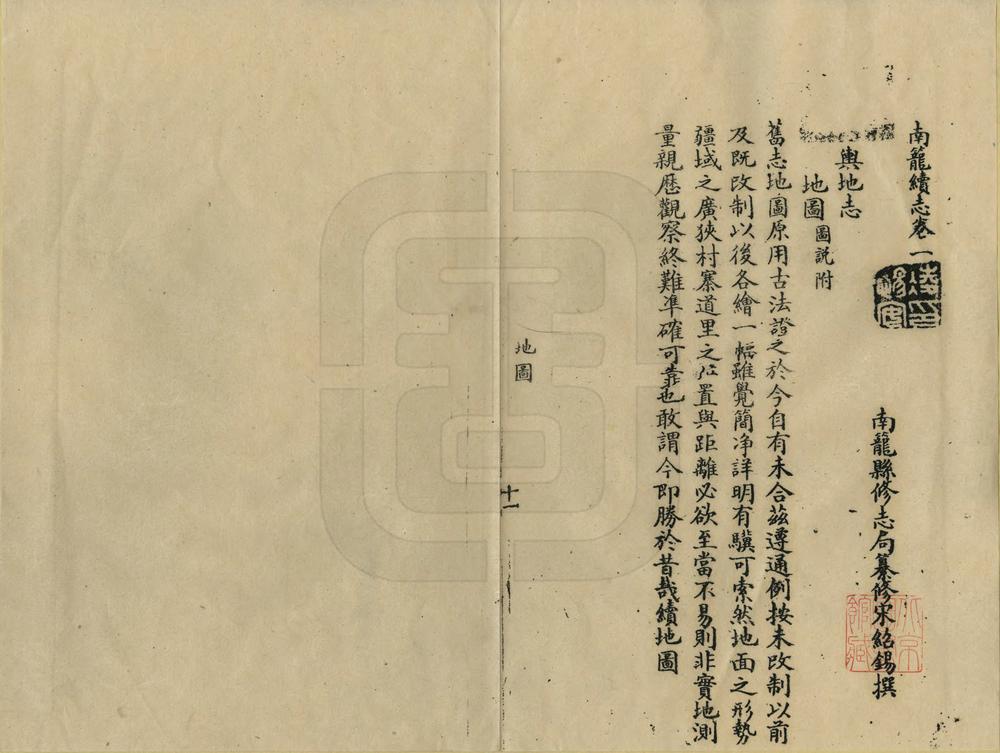 南籠續志卷一
南籠縣修志局纂修宋紹錫撰
輿地志
地圖 圖説附
舊志地圖原用古法證之於今自有未合茲遵通例按未改制以前
及既改制以後各繪一幅雖覺簡净詳明有驥可索然地面之形勢
疆域之廣狹村寨道里之位置與距離必欲至當不易則非實地測
量親歷觀察終難準確可靠也敢謂今即勝於昔哉續地圖
地圖
十一